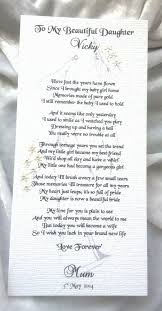 To My Beautiful Daughter
Vicky
How just the years have flown
Since I brought my baby girl home
Memories made of pure gold
I still remember the baby I used to hold
It seems like only yesterday
I used to smile as I watched you play
Dressing up and having a ball
You really were no trouble at all
Through teenage years you set the trend
And my little girl became my best friend
We'd shop all day and have a laugh
My little girl had become a gorgeous
And today I'll bride away a few small tears
Those memories I'll treasure for all my years
My heart just leaps, it's so full of pride
My beautiful daughter, a beautiful bride
My love for you is plain to see
And will always mean the world to me
But today you will become a wife
So I wish you luck in your brand new life
Love Forever
Mum
5th May 2014